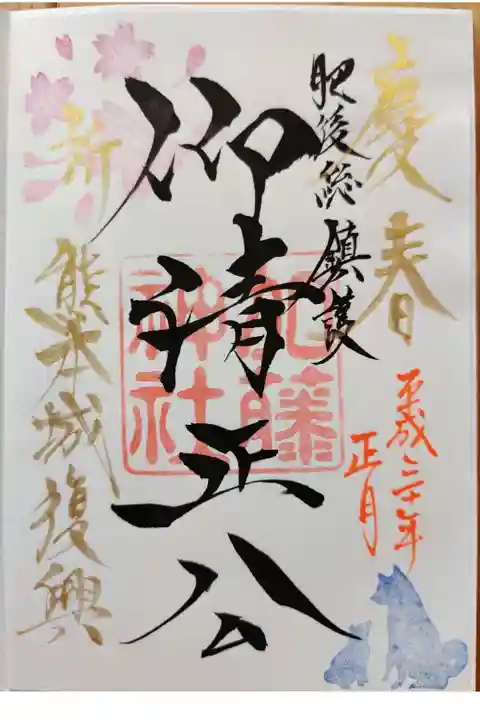 慶春
肥後総鎮護
平成三十年
正月
仰清正公
加藤
神社
祈
熊本城復興